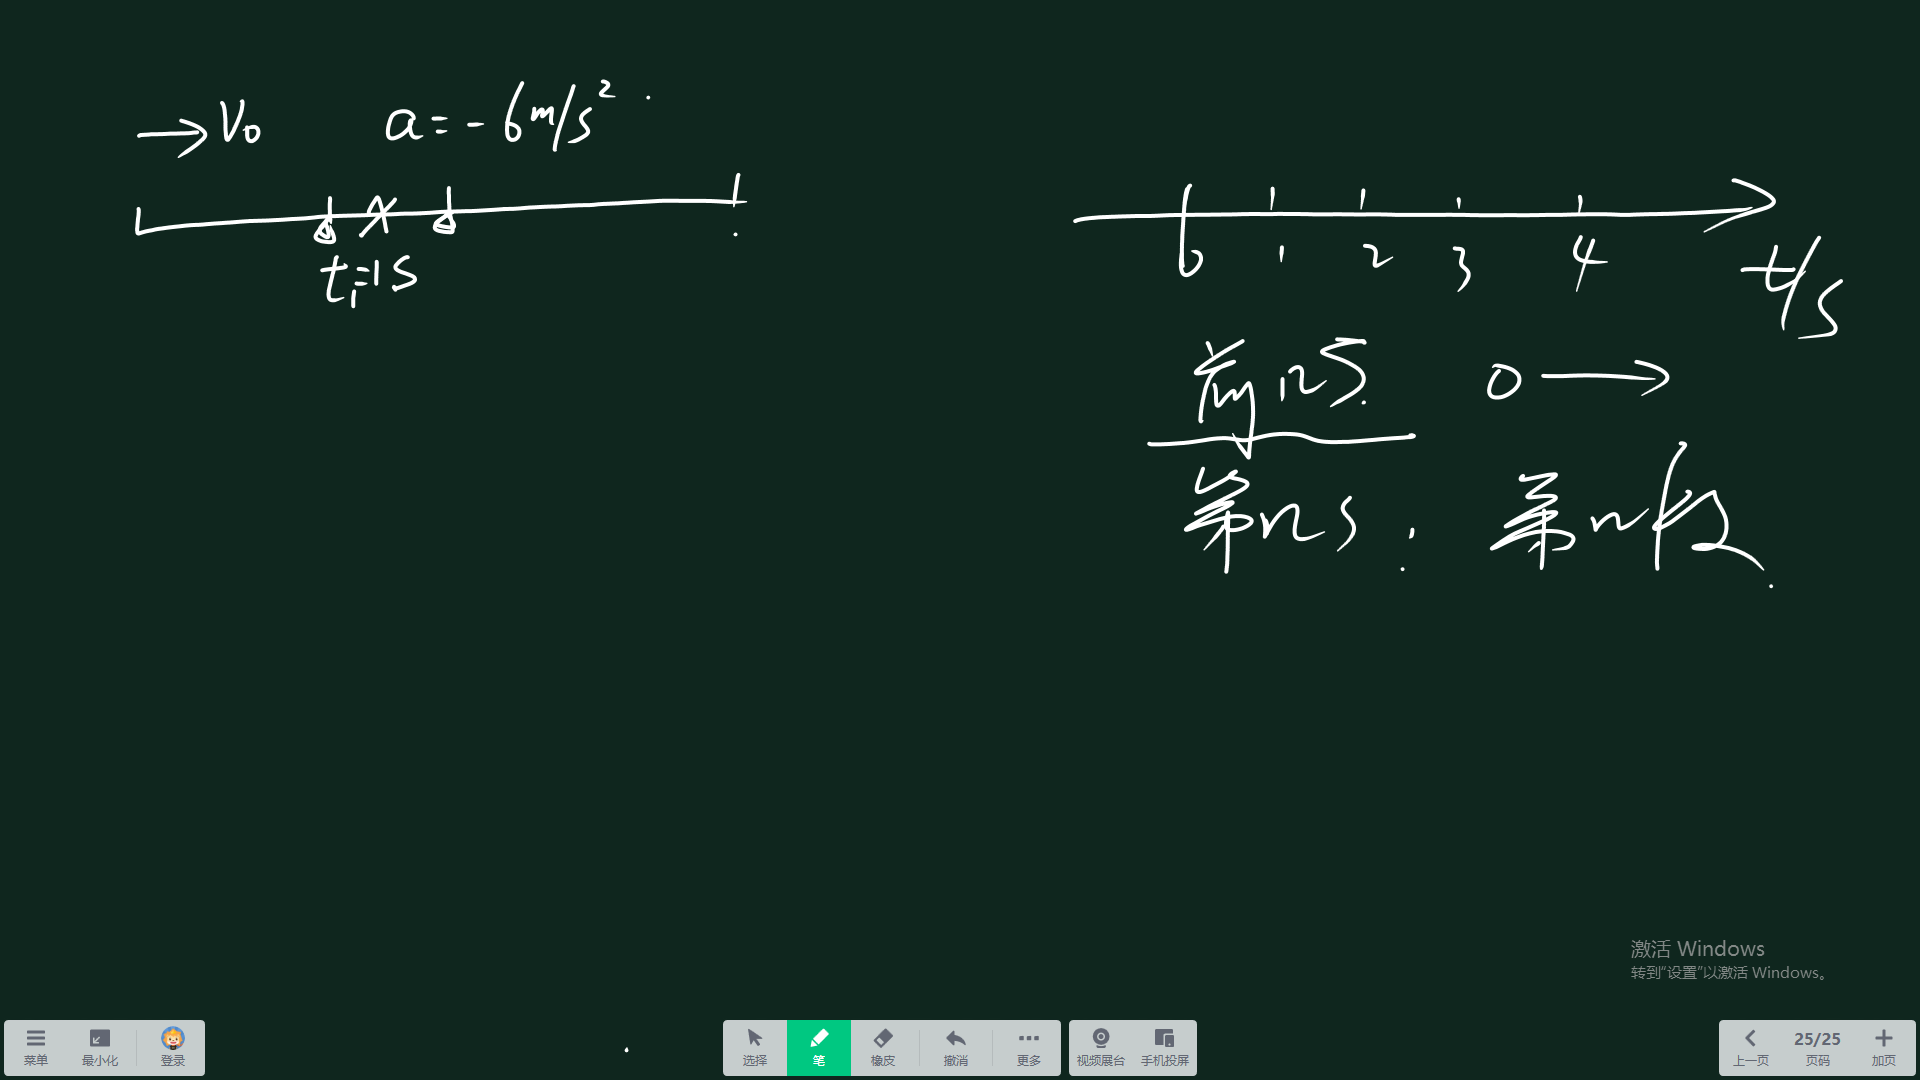 V₀ a=-6m/s²
t₁=1s
0 1 2 3 4 t/s
前ns. 0
第ns. 第n段.
激活 Windows
转到"设置"以激活 Windows。
菜单 最小化 登录 选择 笔 橡皮 撤消 更多 视频展台 手机投屏 上一页 25/25 页码 加页